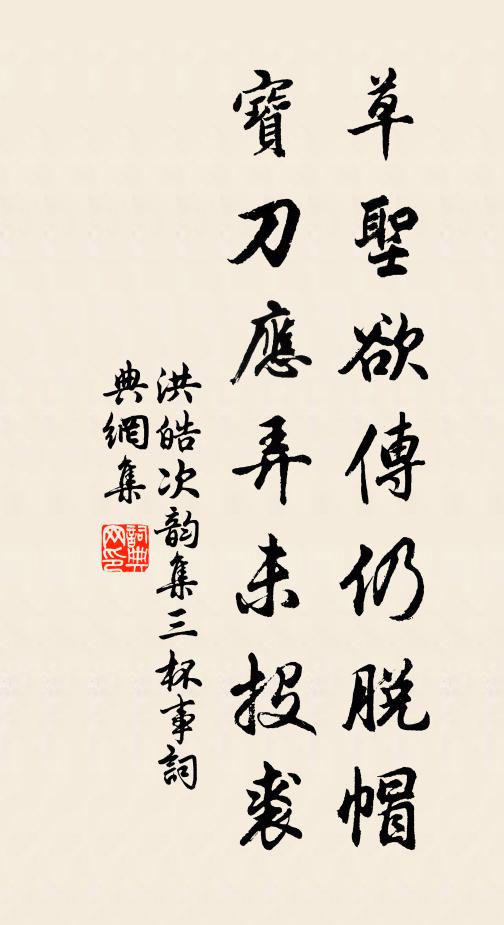 草聖欲傳仍脱帽
寶刀應弄未投裘
洪皓次韵集三杯事詞
典網集
詞典
网印